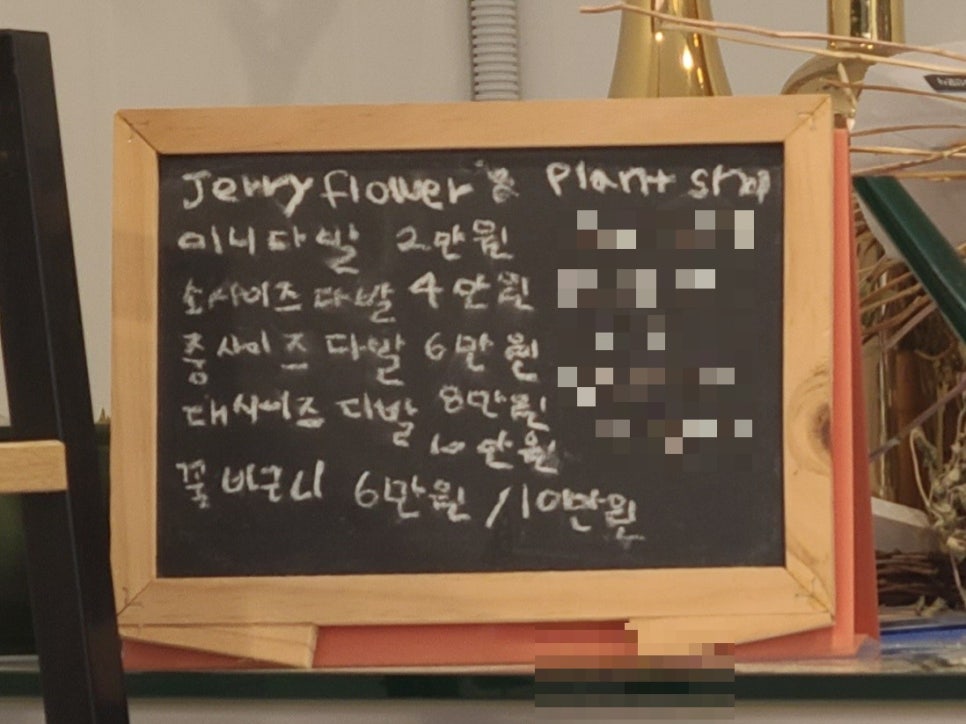 Jerry flower & Plant shop
미니다발 2만원
소사이즈 다발 4만원
중사이즈 다발 6만원
대사이즈 다발 8만원
10만원
꽃바구니 6만원 / 10만원